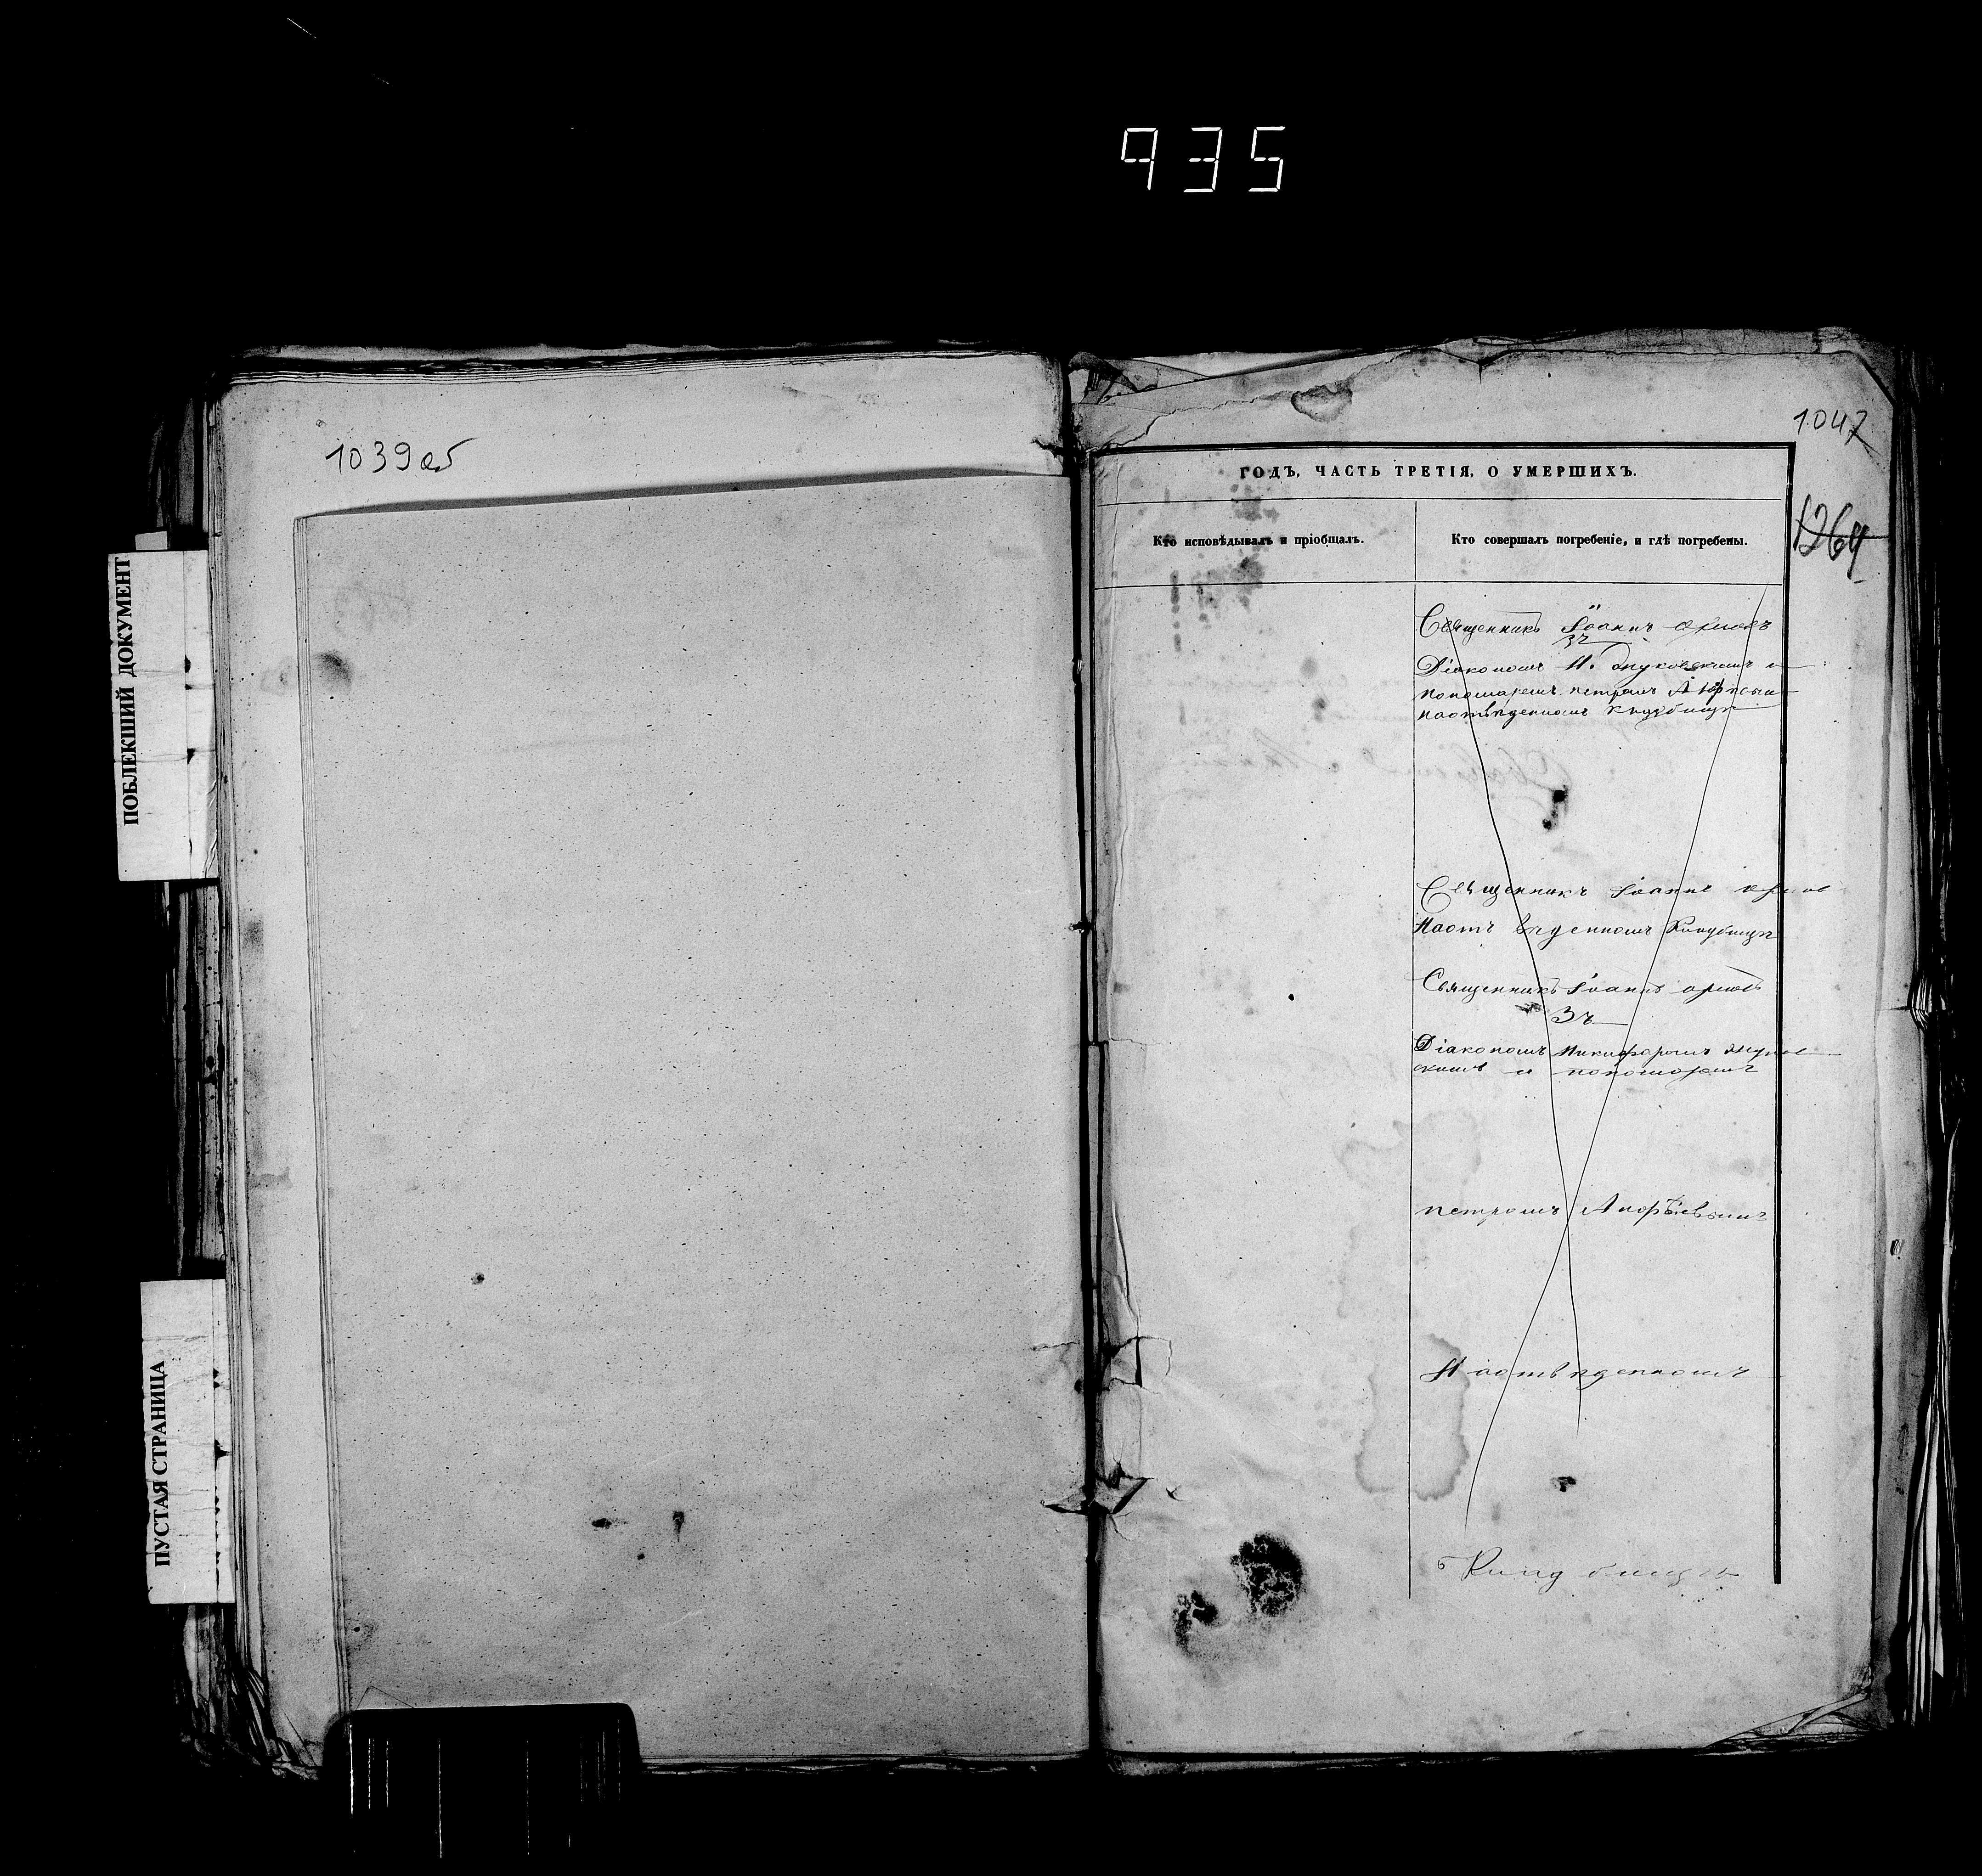 935
1039об
ПОБЛЕКШИЙ ДОКУМЕНТ
ПУСТАЯ СТРАНИЦА
1047
1264
ГОДЪ, ЧАСТЬ ТРЕТІЯ, О УМЕРШИХЪ.
Кто исповѣдывалъ и пріобщалъ.
Кто совершалъ погребеніе, и гдѣ погребены.
Священникъ Іоаннъ Орловъ
зъ
Діакономъ Н. и
пономаремъ петромъ
наотвѣденномъ
Священникъ Іоаннъ
Наотъ вѣденномъ Кладбищѣ
Священникъ Іоаннъ орловъ
Зъ
Діакономъ Никифаромъ
скимъ и пономаремъ
петромъ
Наотвѣденномъ
Кладбищѣ